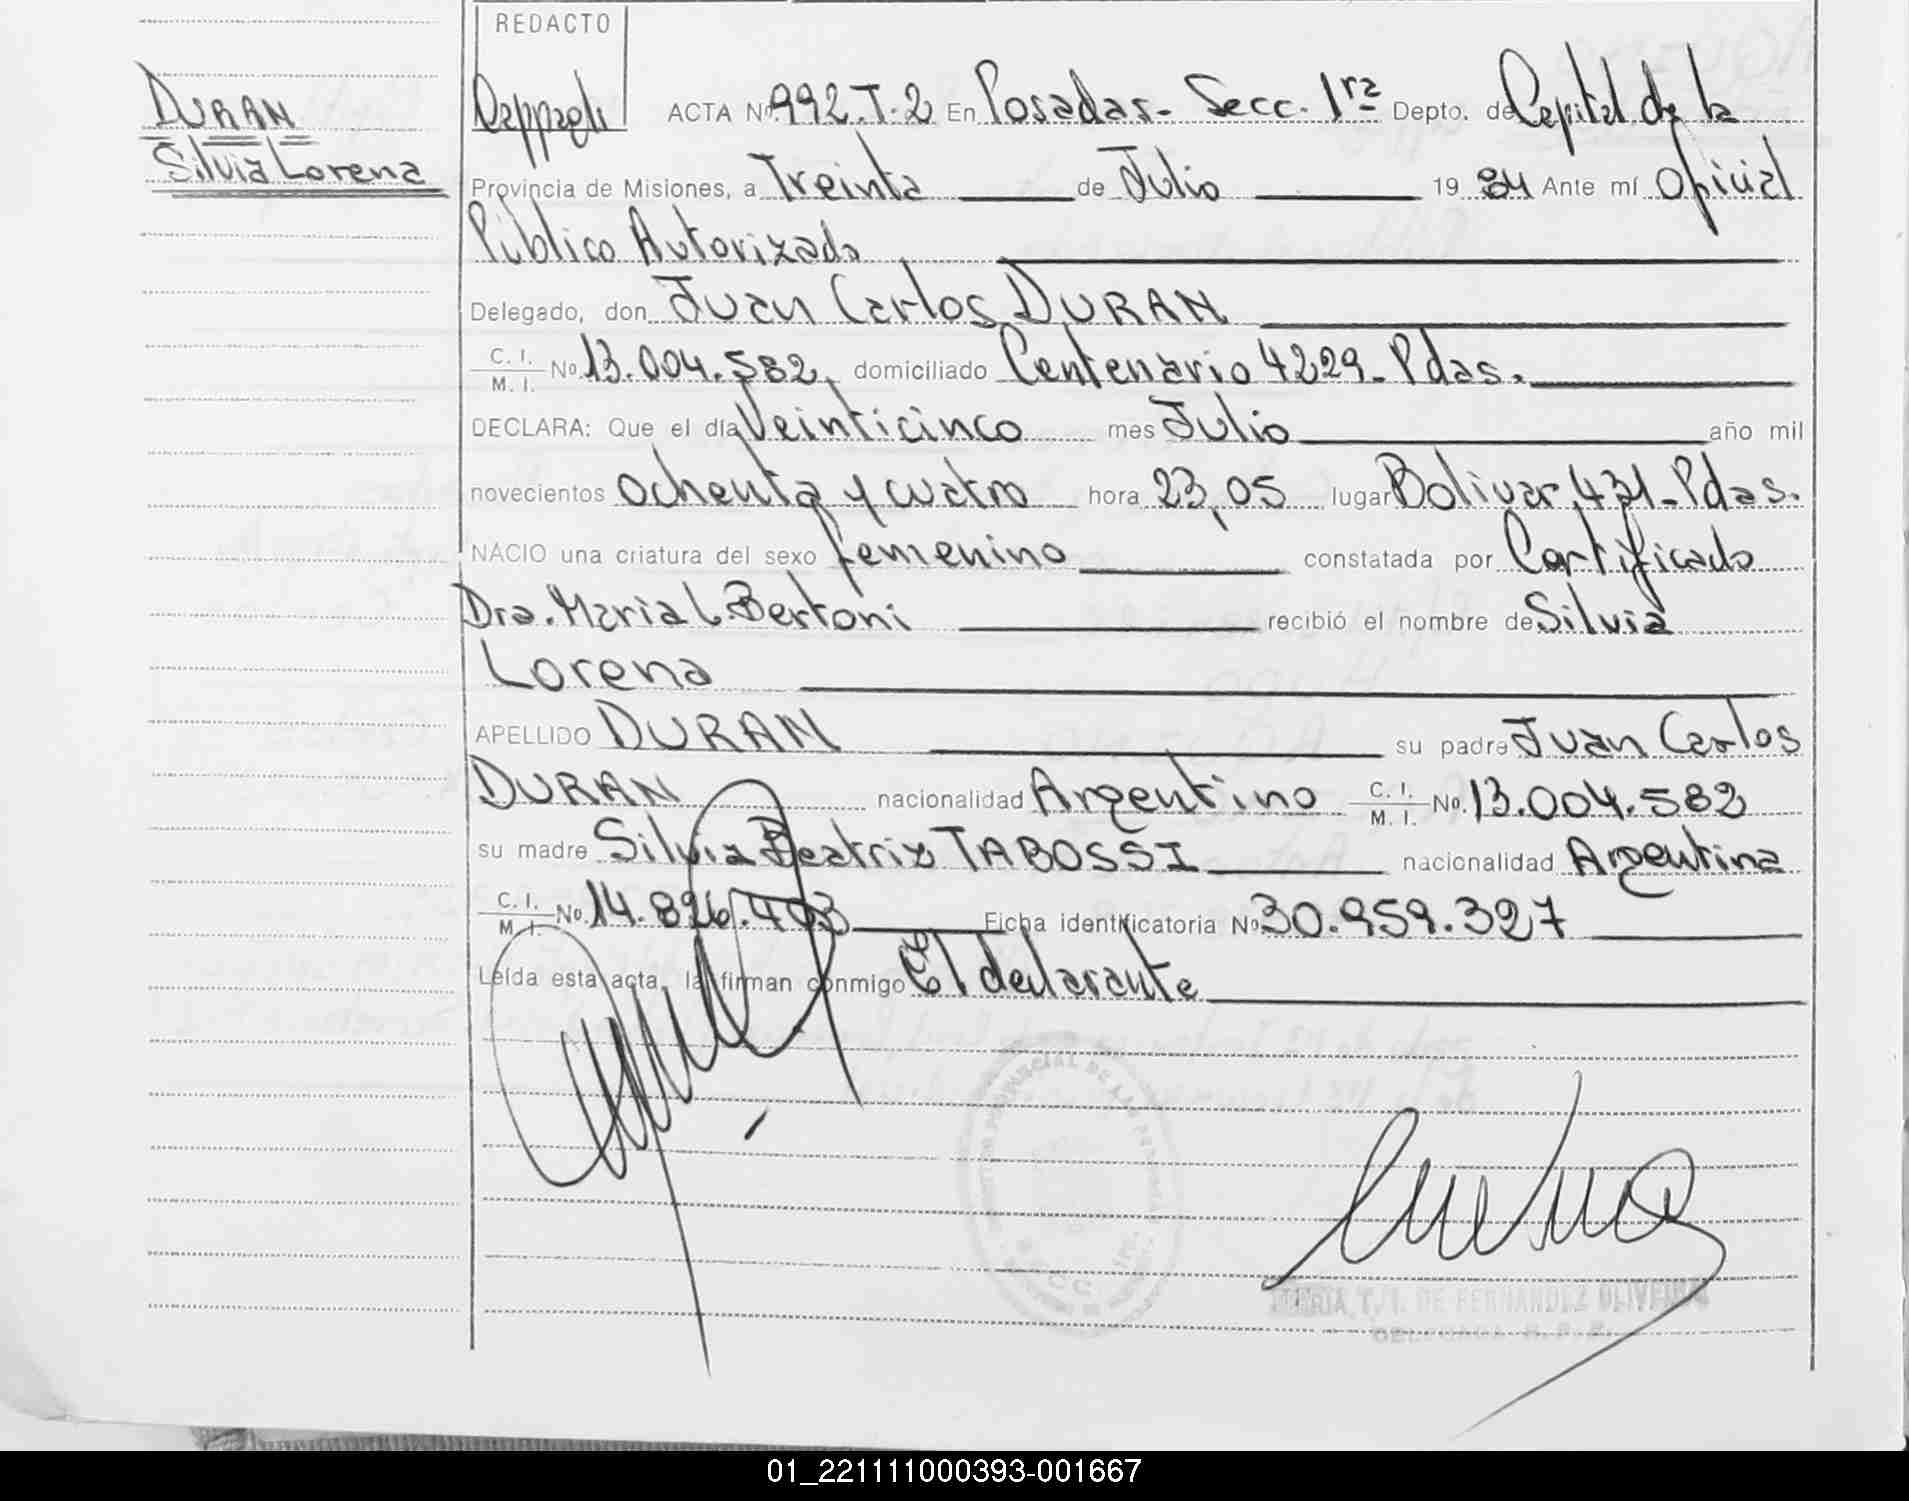 REDACTO
DURAN
Silvia Lorena
ACTA Nº 992.T.2 En Posadas- Secc. 1ra Depto. de Capital de la
Provincia de Misiones, a Treinta de Julio 19 84 Ante mí Oficial
Público Autorizado
Delegado, don Juan Carlos DURAN
C. I.
M. I. Nº 13.004.582, domiciliado Centenario 4229- Pdas.
DECLARA: Que el día Veinticinco mes Julio año mil
novecientos ochenta y cuatro hora 23,05 lugar Bolivar, 431- Pdas.
NACIO una criatura del sexo femenino constatada por Certificado
Dra. Maria L. Bertoni recibió el nombre de Silvia
Lorena
APELLIDO DURAN su padre Juan Carlos
DURAN nacionalidad Argentino C. I.
M. I. Nº. 13.004.582
su madre Silvia Beatriz TABOSSI nacionalidad Argentina
C. I.
M. I. Nº 14.826.403 Ficha identificatoria Nº 30.959.327
Leída esta acta, la firman conmigo El declarante
MARIA T. I. DE FERNANDEZ OLIVEIRA
DELEGADA R. P. P.
01_221111000393-001667